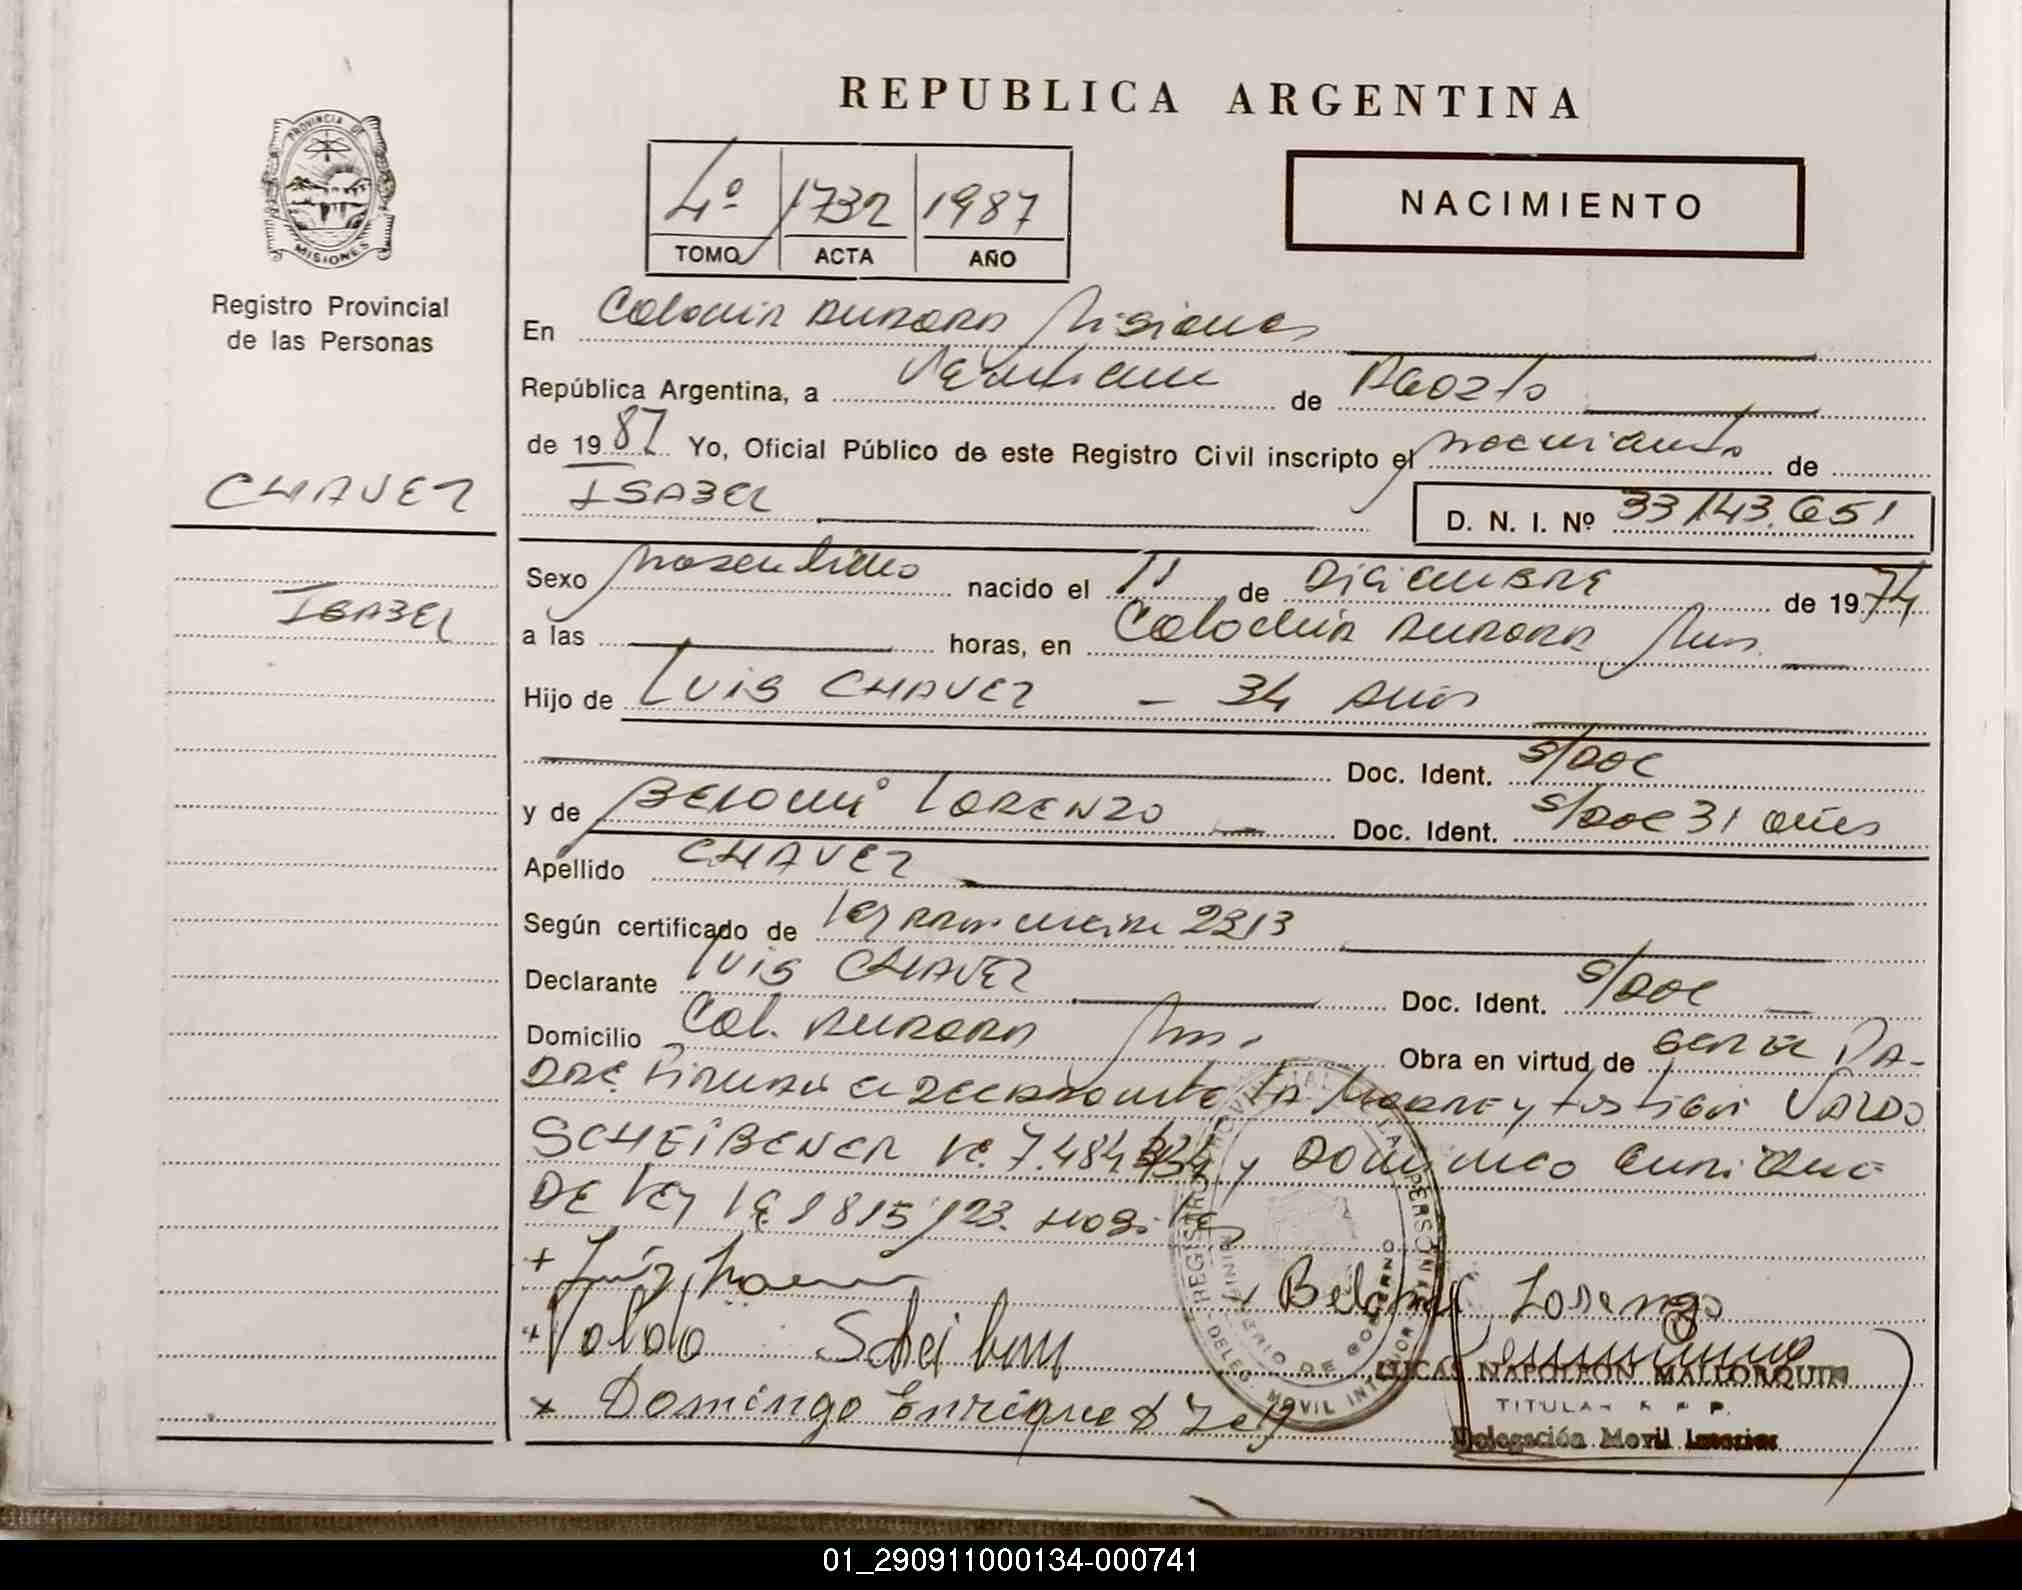 REPUBLICA ARGENTINA
PROVINCIA DE
MISIONES
Registro Provincial
de las Personas
4º 1732 1987
TOMO ACTA AÑO
NACIMIENTO
En Colonia Aurora Misiones
República Argentina, a de Agosto
de 1987 Yo, Oficial Público de este Registro Civil inscripto el nacimiento de
CHAVEZ
ISABEL D. N. I. Nº 33.143.651
Sexo nacido el 11 de Diciembre de 1974
ISABEL
a las horas, en Colonia Aurora Mnes.
Hijo de LUIS CHAVEZ - 34 años
Doc. Ident. S/DOC
y de LORENZO Doc. Ident. S/DOC 31 años
Apellido CHAVEZ
Según certificado de 2313
Declarante LUIS CHAVEZ Doc. Ident. S/DOC
Domicilio Col. AURORA Mnes. Obra en virtud de ser el PA-
DRE. Firman el declarante la Madre y testigos VALDO
SCHEIBENER 7.484. y DOMINGO ENRIQUE
DE
+
+ Lorenzo
+ Valdo
LUCAS NAPOLEON MALLORQUIN
x Domingo Enrique d
TITULAR R P P.
Delegación Movil Interior
REGISTRO PROVINCIAL DE LAS PERSONAS
MINISTERIO DE GOBIERNO
- DELEG. MOVIL INTERIOR
01_290911000134-000741